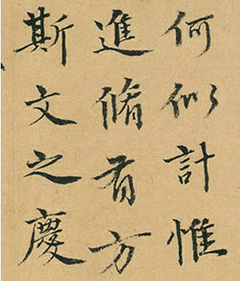 何似計惟
進脩有方
斯文之慶